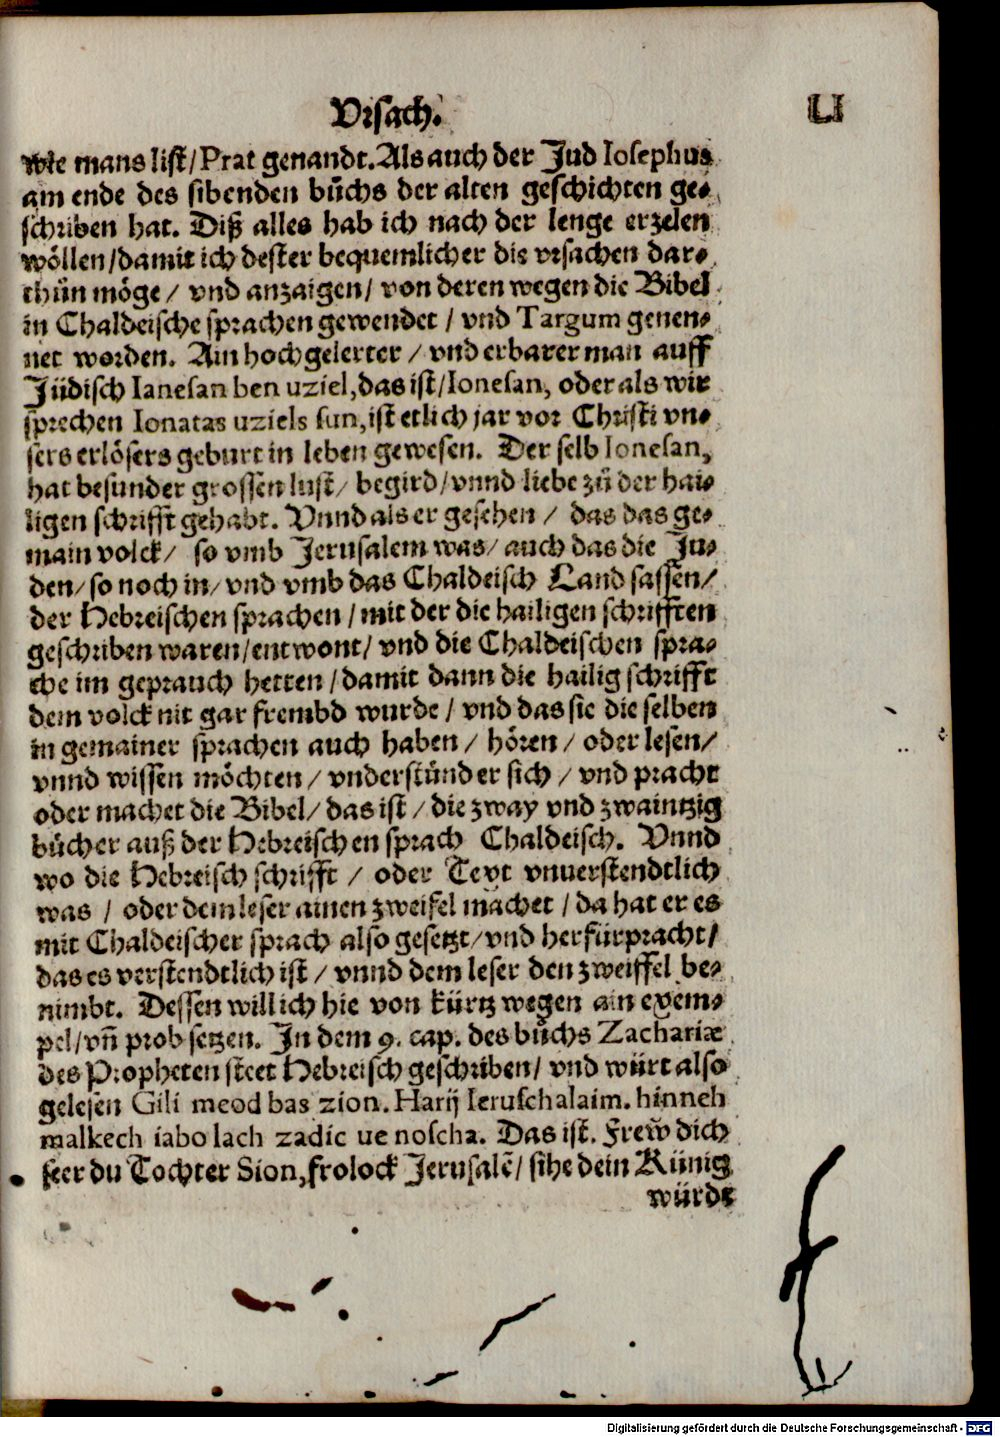 Vrsach.
LI
wie mans list/Prat genandt. Als auch der Jud Iosephus
am ende des sibenden bůchs der alten geschichten ge⸗
schriben hat. Diß alles hab ich nach der lenge erzelen
wöllen/damit ich dester bequemlicher die vrsachen dar⸗
thůn möge/ vnd anzaigen/ von deren wegen die Bibel
in Chaldeische sprachen gewendet / vnd Targum genen⸗
net worden. Ain hochgelerter / vnd erbarer man auff
Jüdisch Ianesan ben uziel, das ist/Ionesan, oder als wir
sprechen Ionatas uziels sun, ist etlich jar vor Christi vn⸗
sers erlösers geburt in leben gewesen. Der selb Ionesan,
hat besunder grossen lust/ begird/vnnd liebe zů der hai⸗
ligen schrifft gehabt. Vnnd als er gesehen / das das ge⸗
main volck/ so vmb Jerusalem was/ auch das die Ju⸗
den/ so noch in/ vnd vmb das Chaldeisch Land sassen/
der Hebreischen sprachen / mit der die hailigen schrifften
geschriben waren/entwont/ vnd die Chaldeischen spra⸗
che im geprauch hetten / damit dann die hailig schrifft
dem volck nit gar frembd wurde / vnd das sie die selben
in gemainer sprachen auch haben / hören / oder lesen/
vnnd wissen möchten / vnderstůnd er sich / vnd pracht
oder machet die Bibel/ das ist / die zway vnd zwaintzig
bůcher auß der Hebreischen sprach Chaldeisch. Vnnd
wo die Hebreisch schrifft / oder Text vnuerstendtlich
was / oder dem leser ainen zweifel machet / da hat er es
mit Chaldeischer sprach also gesetzt/vnd herfürpracht/
das es verstendtlich ist / vnnd dem leser den zweiffel be⸗
nimbt. Dessen will ich hie von kürtz wegen ain exem⸗
pel/vñ prob setzen. In dem 9. cap. des bůchs Zachariæ
des Propheten steet Hebreisch geschriben/ vnd würt also
gelesen Gili meod bas zion. Harij Ieruschalaim. hinneh
malkech iabo lach zadic ue noscha. Das ist. Frew dich
seer du Tochter Sion, frolock Jerusalē/ sihe dein Künig
würdt
Digitalisierung gefördert durch die Deutsche Forschungsgemeinschaft - DFG